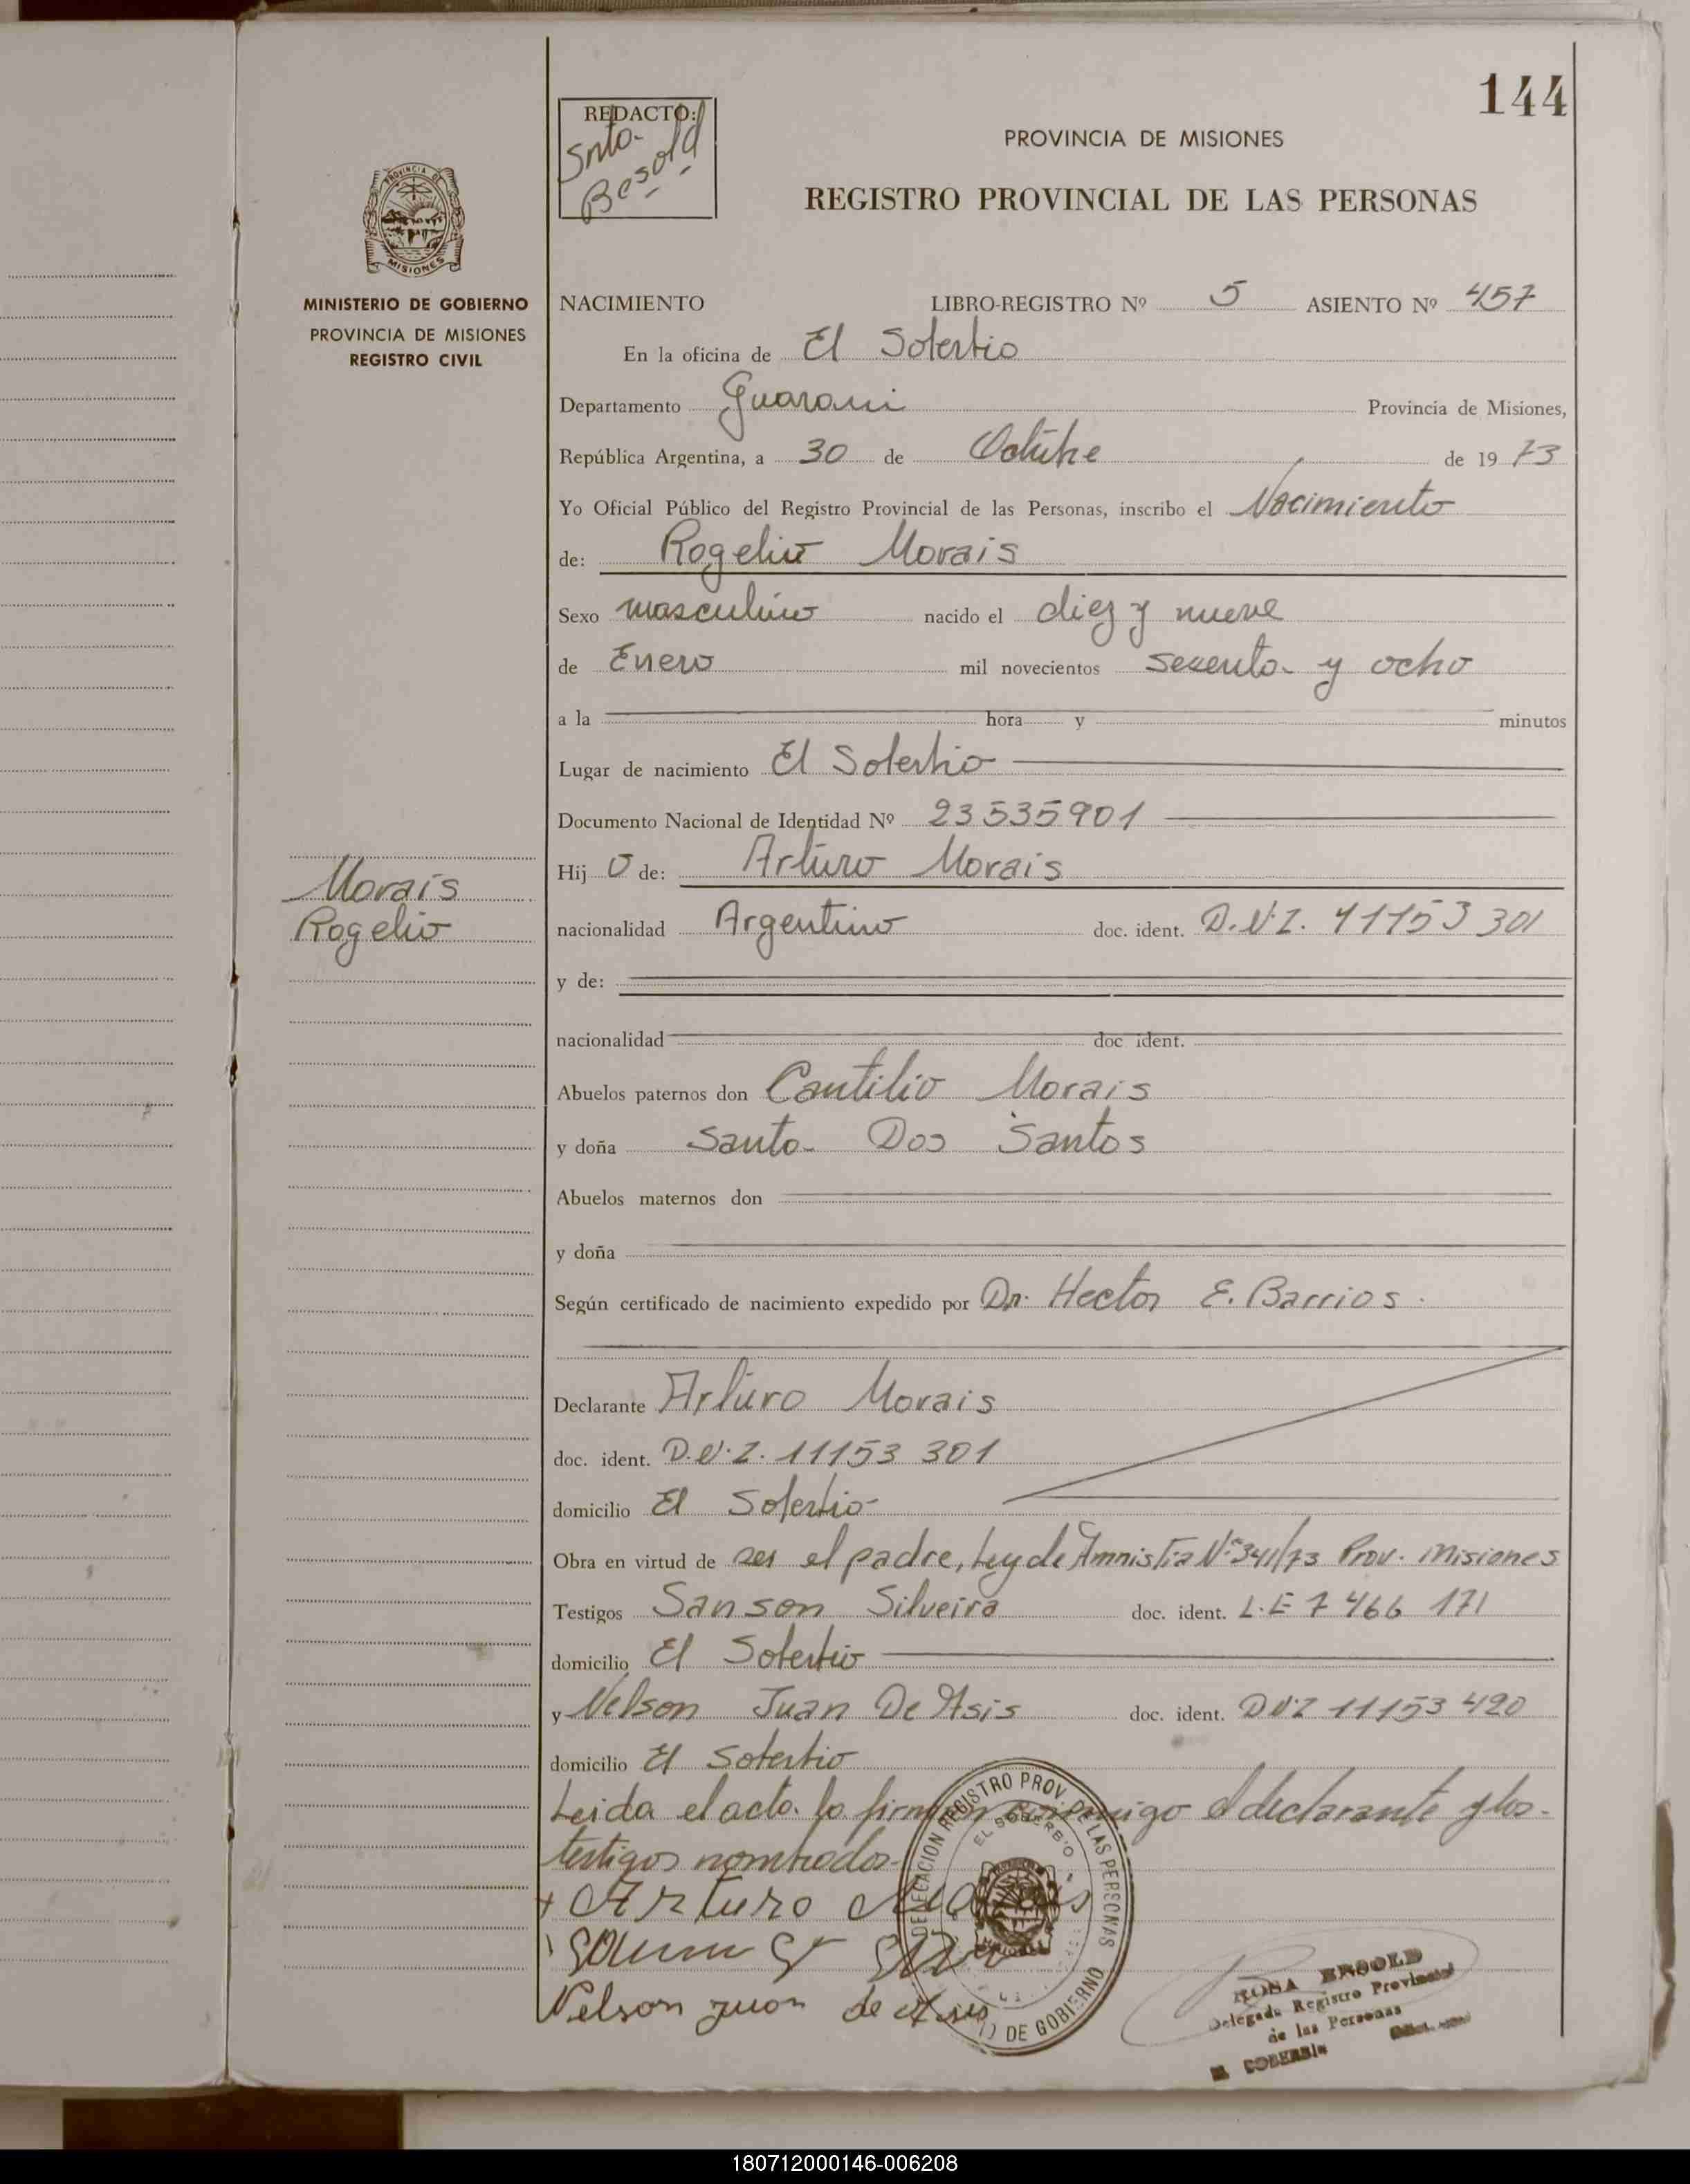 144
REDACTO:
Srita.
Besold
PROVINCIA DE MISIONES
REGISTRO PROVINCIAL DE LAS PERSONAS
PROVINCIA DE
MISIONES
MINISTERIO DE GOBIERNO
PROVINCIA DE MISIONES
REGISTRO CIVIL
NACIMIENTO LIBRO-REGISTRO Nº 5 ASIENTO Nº 457
En la oficina de El Soberbio
Departamento Guarani Provincia de Misiones,
República Argentina, a 30 de Octubre de 1973
Yo Oficial Público del Registro Provincial de las Personas, inscribo el Nacimiento
de: Rogelio Morais
Sexo masculino nacido el diez y nueve
de Enero mil novecientos sesenta y ocho
a la hora y minutos
Lugar de nacimiento El Soberbio
Documento Nacional de Identidad Nº 23535901
Morais
Rogelio
Hijo de: Arturo Morais
nacionalidad Argentino doc. ident. D.N.I. 11153301
y de:
nacionalidad doc ident.
Abuelos paternos don Cantilio Morais
y doña Santa Dos Santos
Abuelos maternos don
y doña
Según certificado de nacimiento expedido por Dr. Hector E. Barrios.
Declarante Arturo Morais
doc. ident. D.N.I. 11153 301
domicilio El Soberbio
Obra en virtud de ser el padre, Ley de Amnistia Nº 341/73 Prov. Misiones
Testigos Sanson Silveira doc. ident. L.E 7 466 171
domicilio El Soberbio
y Nelson Juan De Asis doc. ident. DNI 11153 420
domicilio El Soberbio
Leida el acta la firman conmigo el declarante y los
testigos nombrados
Arturo Morais
Nelson Juan de Asis
DELEGACION REGISTRO PROV. DE LAS PERSONAS
EL SOBERBIO
DE GOBIERNO
ROSA BESOLD
Delegada Registro Provincial
de las Personas
EL SOBERBIO
180712000146-006208